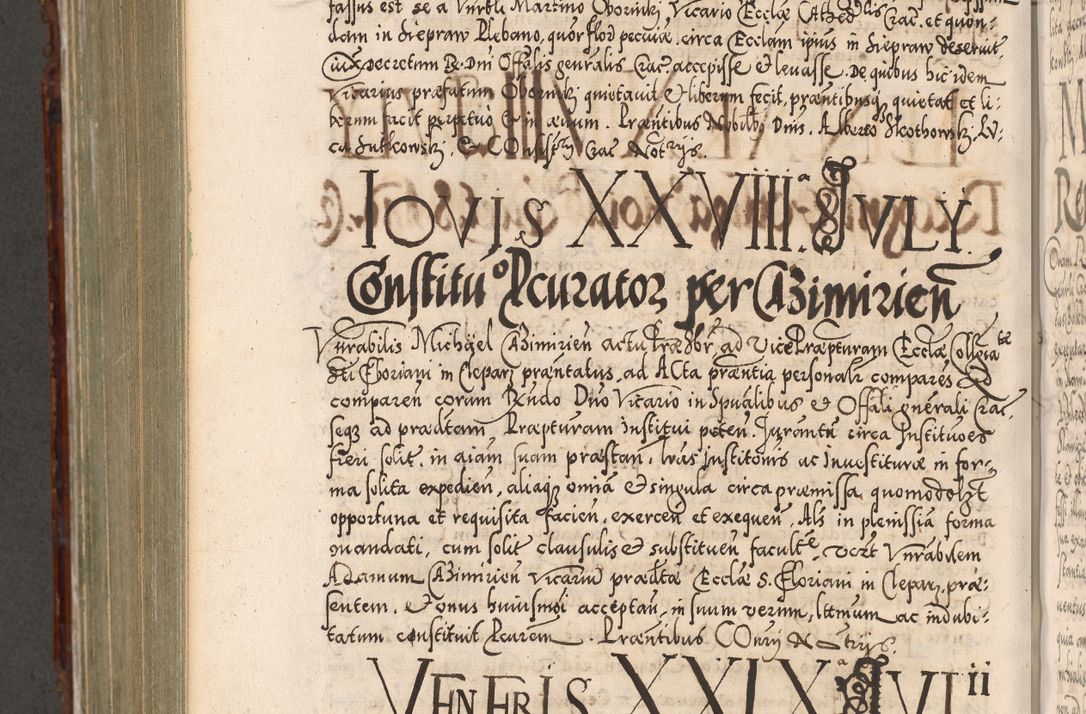 fassus est se a Vnrbli Martino Oborniki Vicario Ecclæ Cathedlis Crac. et quon-
dam in Siepraw Plebano, quor flod pecuiæ circa Ecclam ipius in Siepraw deseruit
iuxa decretum R. Dni Offalis genralis Crac. accepisse et levasse. De quibus hic idem
Vicarius præfatum Obornicki quietauit et liberum fecit, præntibusq quietat et li-
berum facit perpetuo et in æuum. Præntibus Nobilibs Dnis. Alberto Skothowski, Lu-
ca Sulkowski, et COnsistrij Crac Notrijs.
IOVIS XXVIIIa. IVLY.
Constitu° Pcurator per CAZimirien
Vnrabilis Michael CAZimirien actu Præsbr ad VicePræpturam Ecclæ Collegiatæ
Sti Floriani in Clepar præntatus, ad ActA præntia personalr compares et
comparen coram Rndo Dno Vicario in Spualibus et Offali gnerali Crac.
seq ad prædtam Præpturam Institui peten. Jurantu circa Instituoes
fieri solit, in aiam suam præstan, lras Institonis ac Inuestituræ in for-
ma solita expedien, aliaq omia et singula circa præmissa quomodolzt
opportuna et requisita facien, exercen et exequen, Als in plenissia forma
mandati, cum solit clausulis et substituen facultæ, vozt Vnrabilem
Adamum CAZimirien Vicariu prædtæ Ecclæ S. Floriani in Clepar, præ-
sentem, et onus huiusmoi acceptan, in suum verum, lttmum ac indubi-
tatum constituit Pcurem. Præntibus COnrij Notrijs.
VENERIS XXIXa IVLii